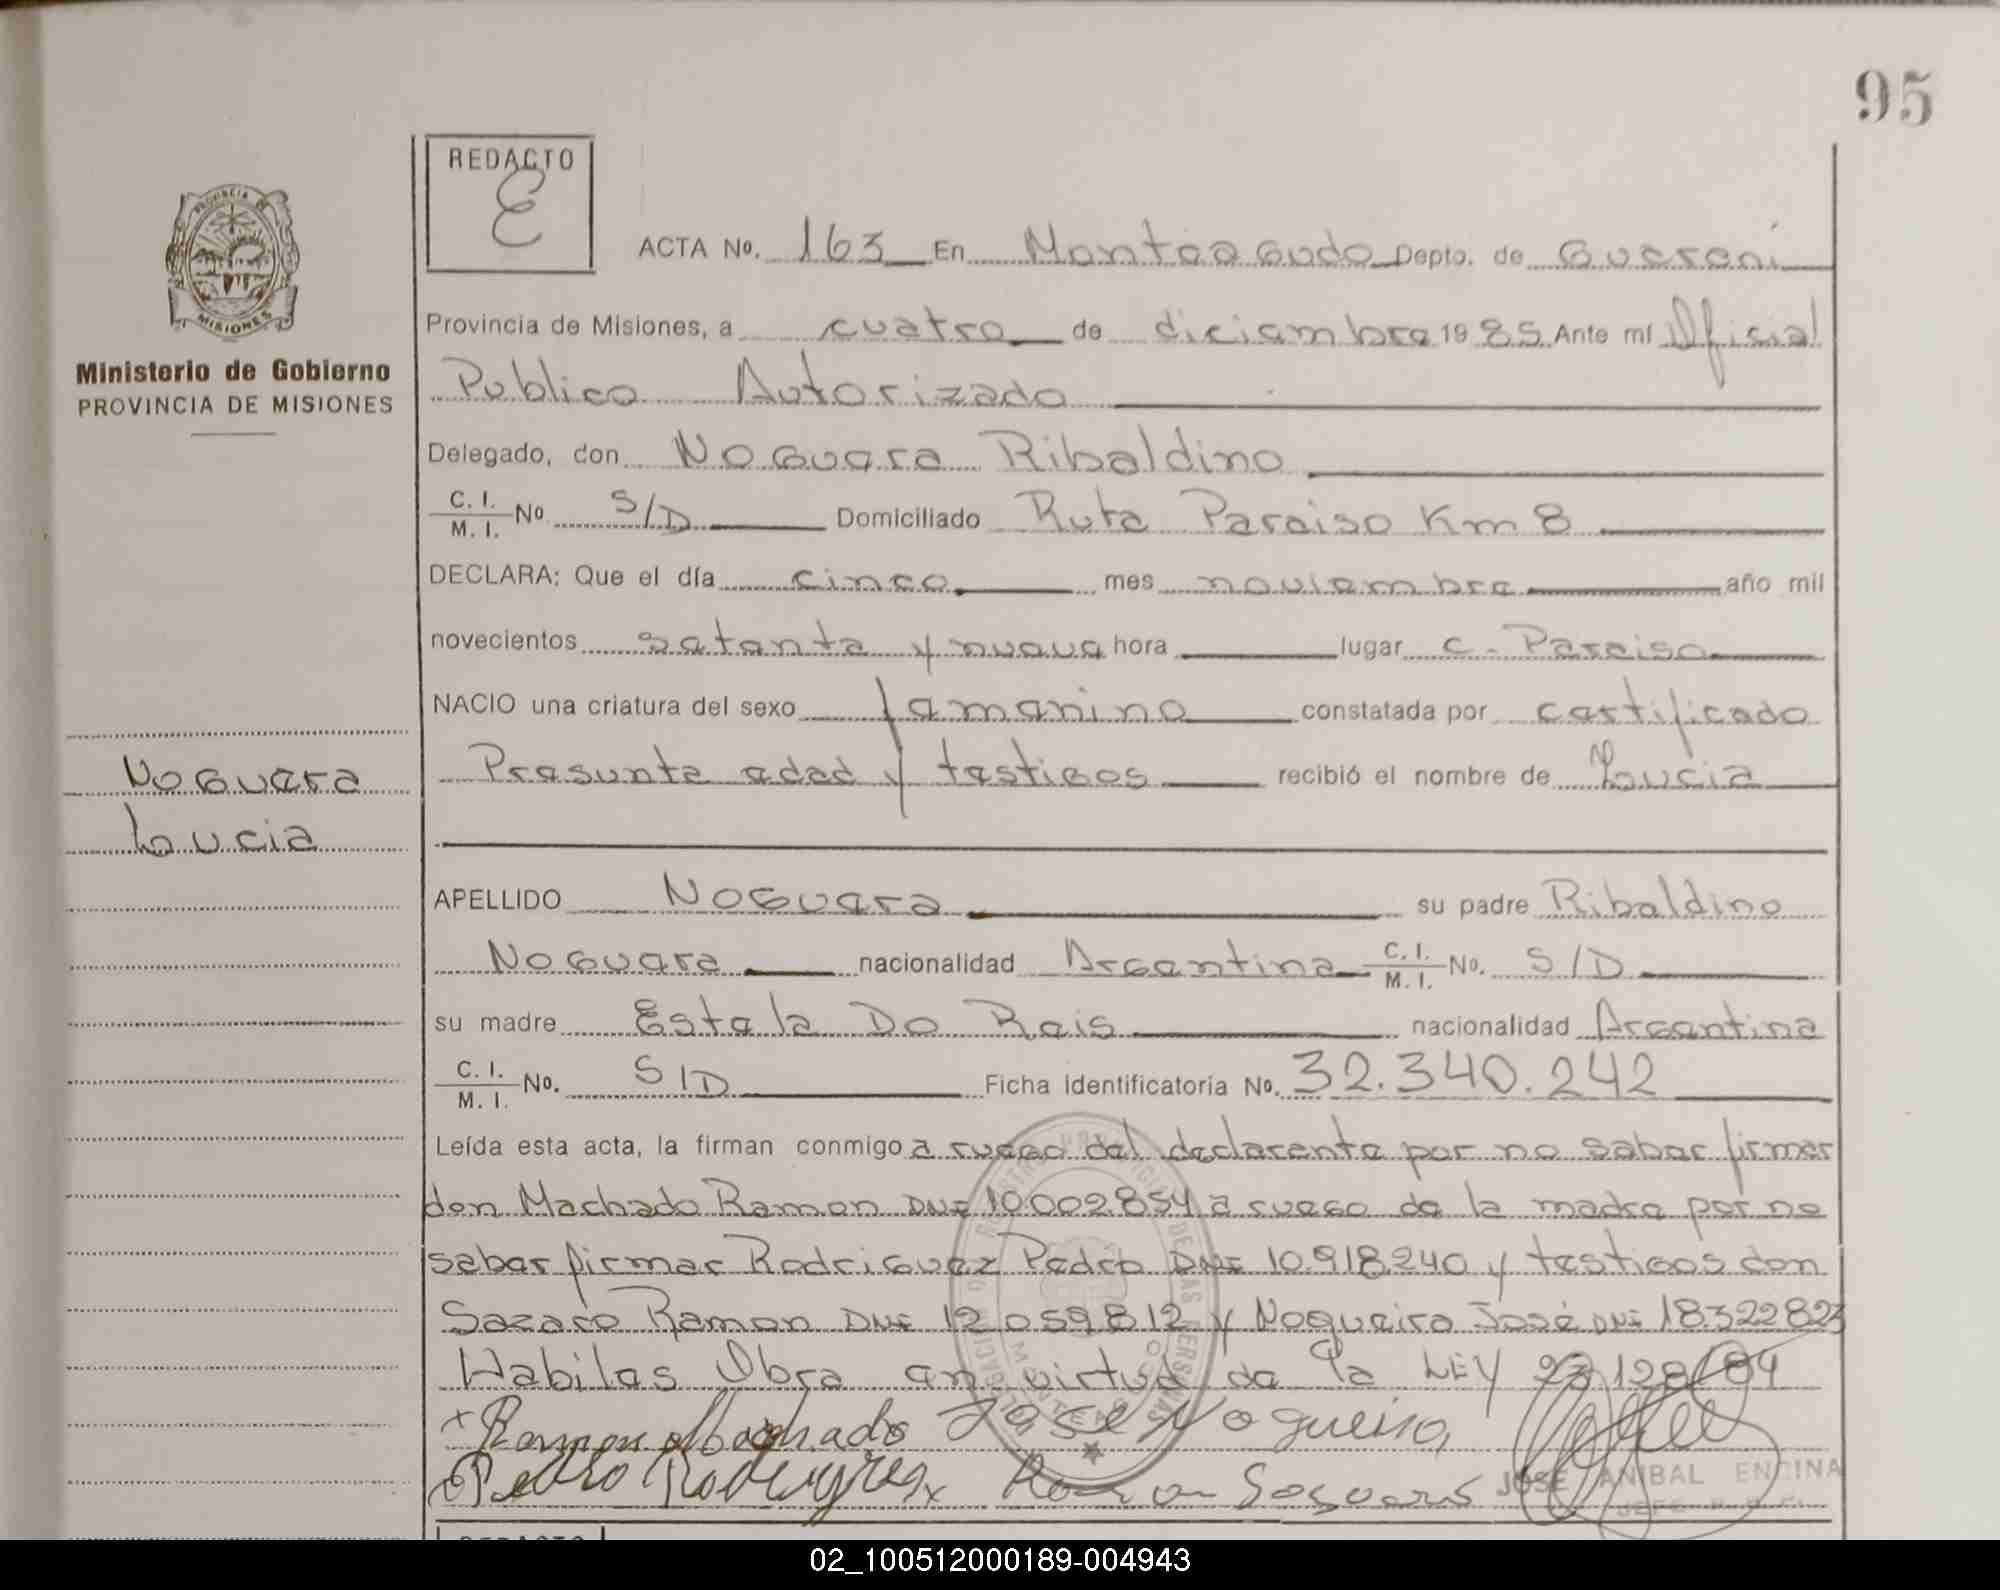 95
REDACTO
E
ACTA No. 163 En Monteagudo Depto. de Guaraní
Provincia de Misiones, a cuatro de diciembre 1985 Ante mí Oficial
Publico Autorizado
Ministerio de Gobierno
PROVINCIA DE MISIONES
Delegado, don Noguera Ribaldino
C. I.
M. I. No S/D Domiciliado Ruta Paraiso Km 8
DECLARA: Que el día cinco mes noviembre año mil
novecientos setenta y nueve hora lugar C. Paraiso
NACIO una criatura del sexo femenino constatada por certificado
Presunta edad y testigos recibió el nombre de Lucia
Noguera
Lucia
APELLIDO Noguera su padre Ribaldino
Noguera nacionalidad Argentina C. I.
M. I. No. S/D
su madre Estela Do Reis nacionalidad Argentina
C. I.
M. I. No. S/D Ficha identificatoria No. 32.340.242
Leída esta acta, la firman conmigo a ruego del declarente por no saber firmar
don Machado Ramon DNI 10.002.854 a ruego de la madre por no
saber firmar Rodriguez Pedro DNI 10.918.240 y testigos don
Ramon DNI 12.059.812 y Nogueira José DNI 18.322.823
Habiles Obra en virtud de la LEY 23.128/84
Ramon Machado Jose Nogueira
Pedro Rodriguez Ramon
JOSE ANIBAL ENCINA
JEFE
REDACTO
02_100512000189-004943